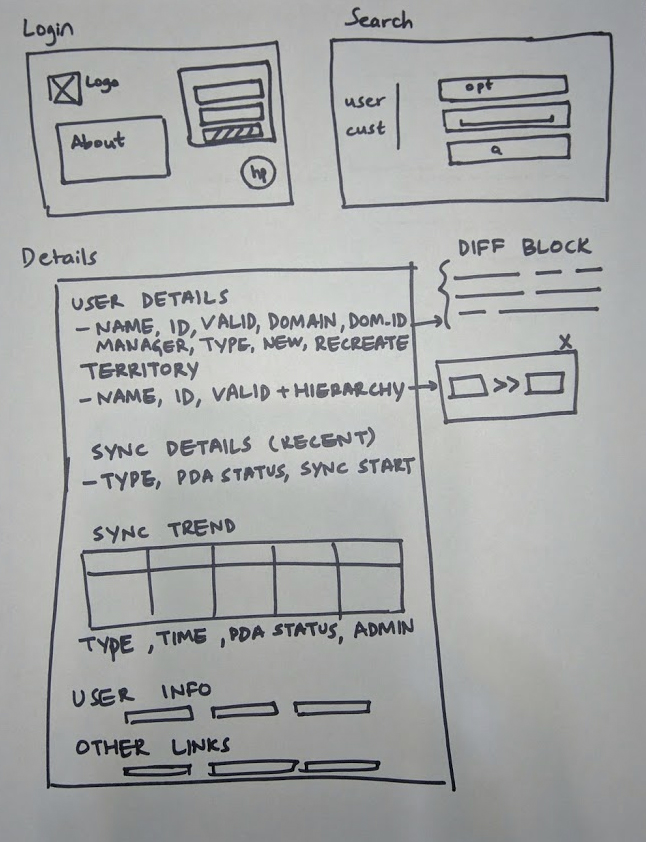 Login
Search
Logo
About
hp
opt
user
cust
a
Details
DIFF BLOCK
USER DETAILS
- NAME, ID, VALID, DOMAIN, DOM-ID
MANAGER, TYPE, NEW, RECREATE
TERRITORY
- NAME, ID, VALID + HIERARCHY
X
>>
SYNC DETAILS (RECENT)
- TYPE, PDA STATUS, SYNC START
SYNC TREND
TYPE, TIME, PDA STATUS, ADMIN
USER INFO
OTHER LINKS